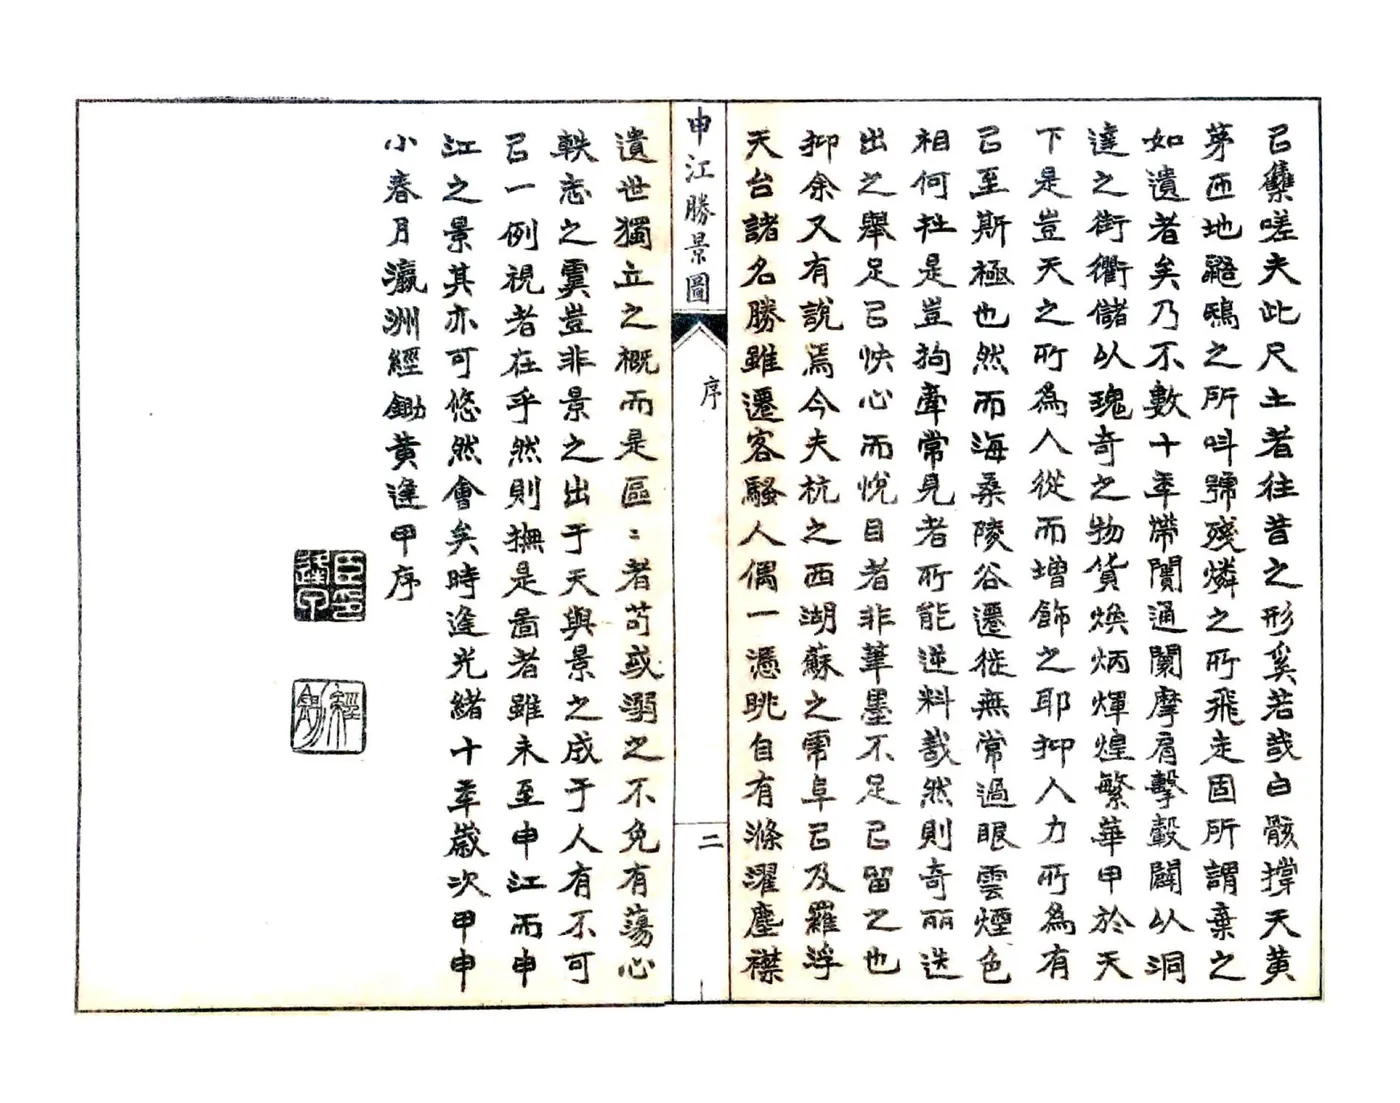 己雧嗟夫此尺土者往昔之形奚若哉白骸撐天黄
茅匝地鼯鴟之所呌號殘燐之所飛走固所謂棄之
如遺者矣乃不數十年帶闠通闤摩肩擊轂闢以洞
達之街衢儲以瑰奇之物貨煥炳輝煌繁華甲於天
下是豈天之所為人從而增飾之耶抑人力所為有
己至斯極也然而海桑陵谷遷徙無常過眼雲煙色
相何在是豈拘牽常見者所能逆料哉然則奇麗迭
出之舉足己快心而悅目者非筆墨不足己留之也
抑余又有說焉今夫杭之西湖蘇之虎阜己及羅浮
天台諸名勝雖遷客騷人偶一憑眺自有滌濯塵襟
申江勝景圖
序
二
遺世獨立之概而是區〻者苟或溺之不免有蕩心
軼志之虞豈非景之出于天與景之成于人有不可
己一例視者在乎然則撫是啚者雖未至申江而申
江之景其亦可悠然會矣時逢光緒十年歲次甲申
小春月瀛洲經鋤黄逢甲序
臣印逢甲
經鋤